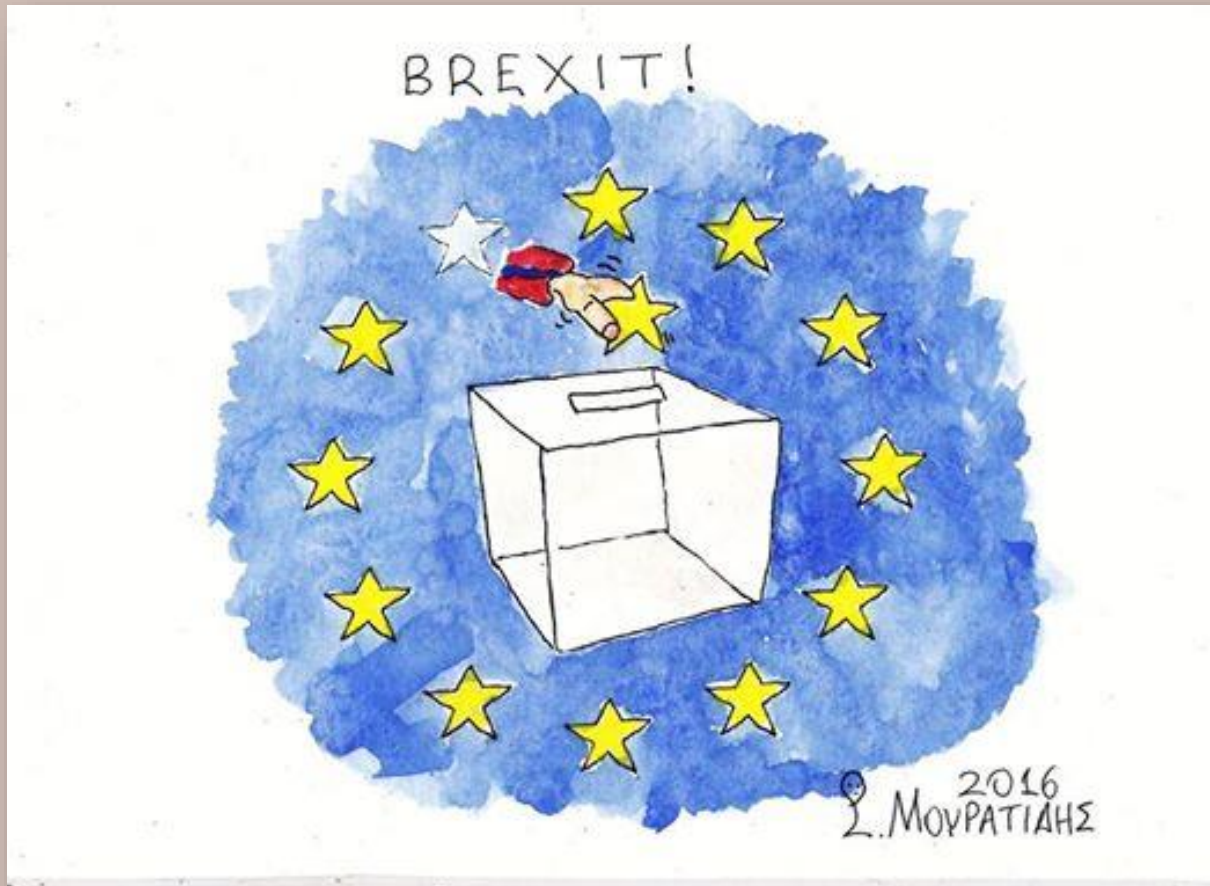 BREXIT!
2016
Σ. ΜΟΥΡΑΤΙΔΗΣ